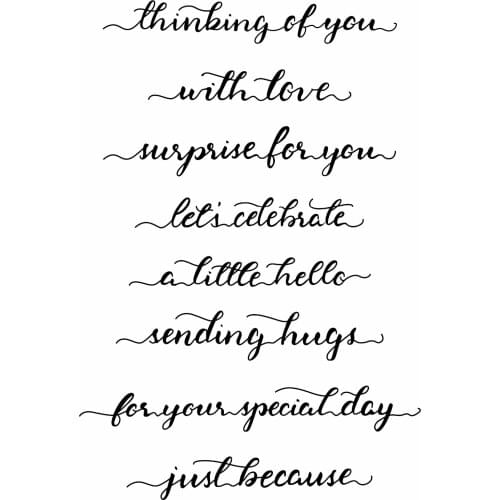 thinking of you
with love
surprise for you
let's celebrate
a little hello
sending hugs
for your special day
just because